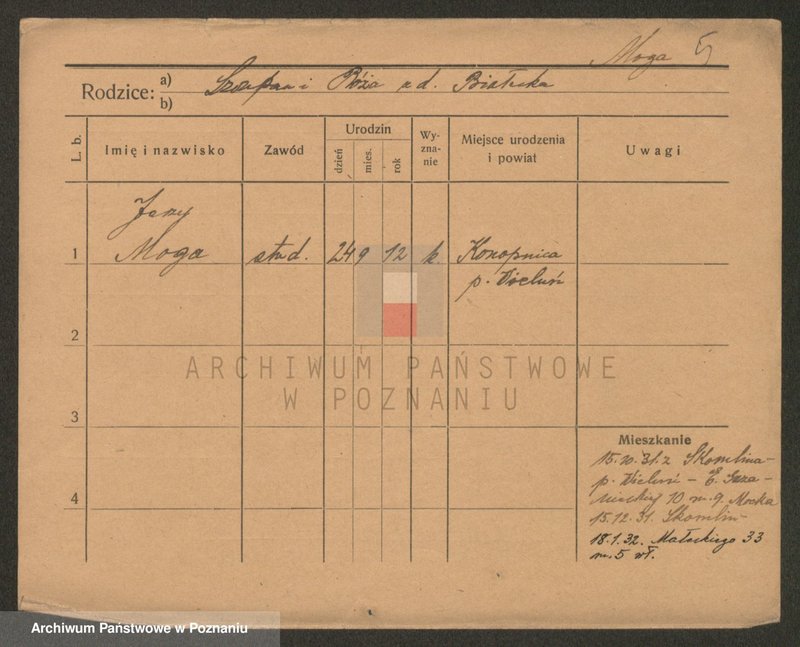 Moga
Rodzice: a) Szczepan i Róża z d. Białecka
b)
L. b.
Imię i nazwisko
Zawód
Urodzin
dzień
mies.
rok
Wy-
zna-
nie
Miejsce urodzenia
i powiat
Uwagi
Jerzy
1 Moga stud. 24 9 12 k. Konopnica
p. Wieluń
2
ARCHIWUM PAŃSTWOWE
W POZNANIU
3
Mieszkanie
15.10.31. z Skomlina -
p. Wieluń -
10 m. 9. Mocka
4
15.12.31. Skomlin -
18.1.32. Małeckiego 33
m. 5 wł.
Archiwum Państwowe w Poznaniu